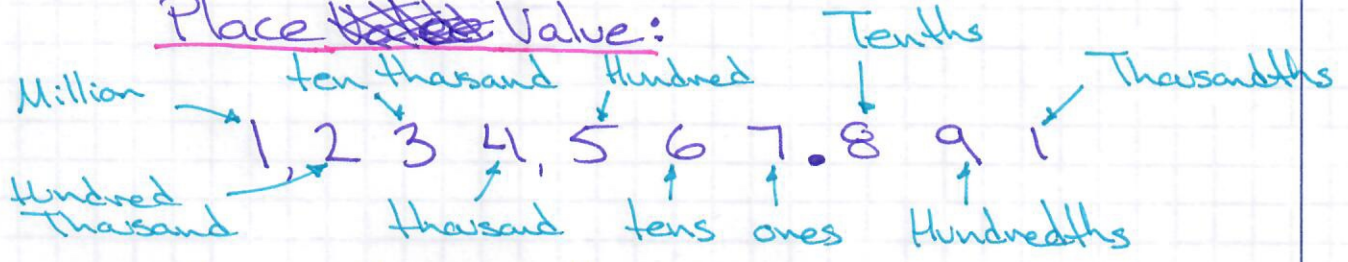 Place Value:
Tenths
Million
ten thousand
Hundred
Thousandths
1,234,567.891
Hundred
Thousand
thousand
tens
ones
Hundredths